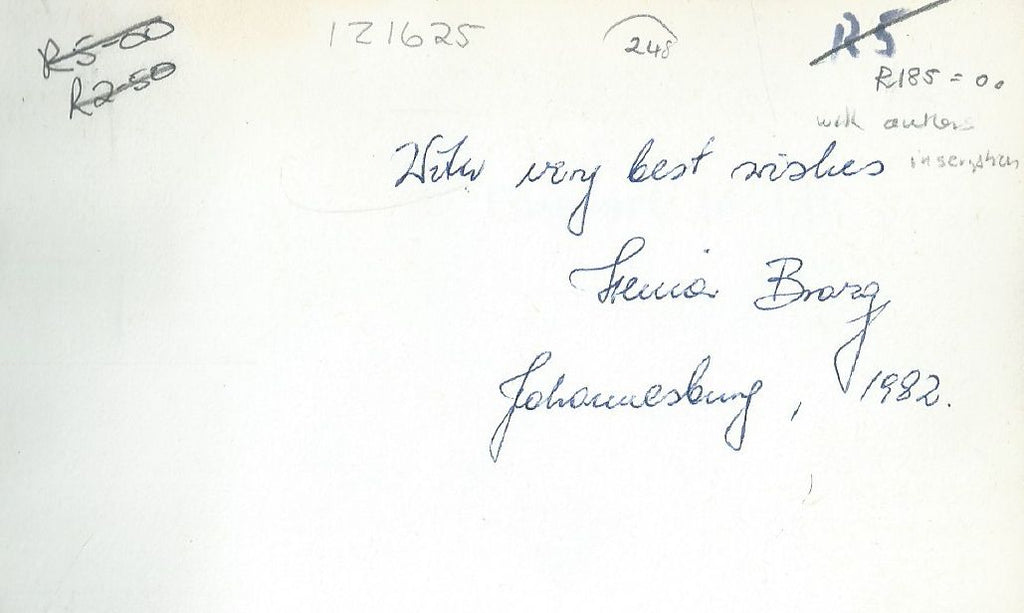 R5-00
R2-50
121625
248
R5
R185=00
with authors
inscription
With very best wishes
Xenia Borg
Johannesburg, 1982.